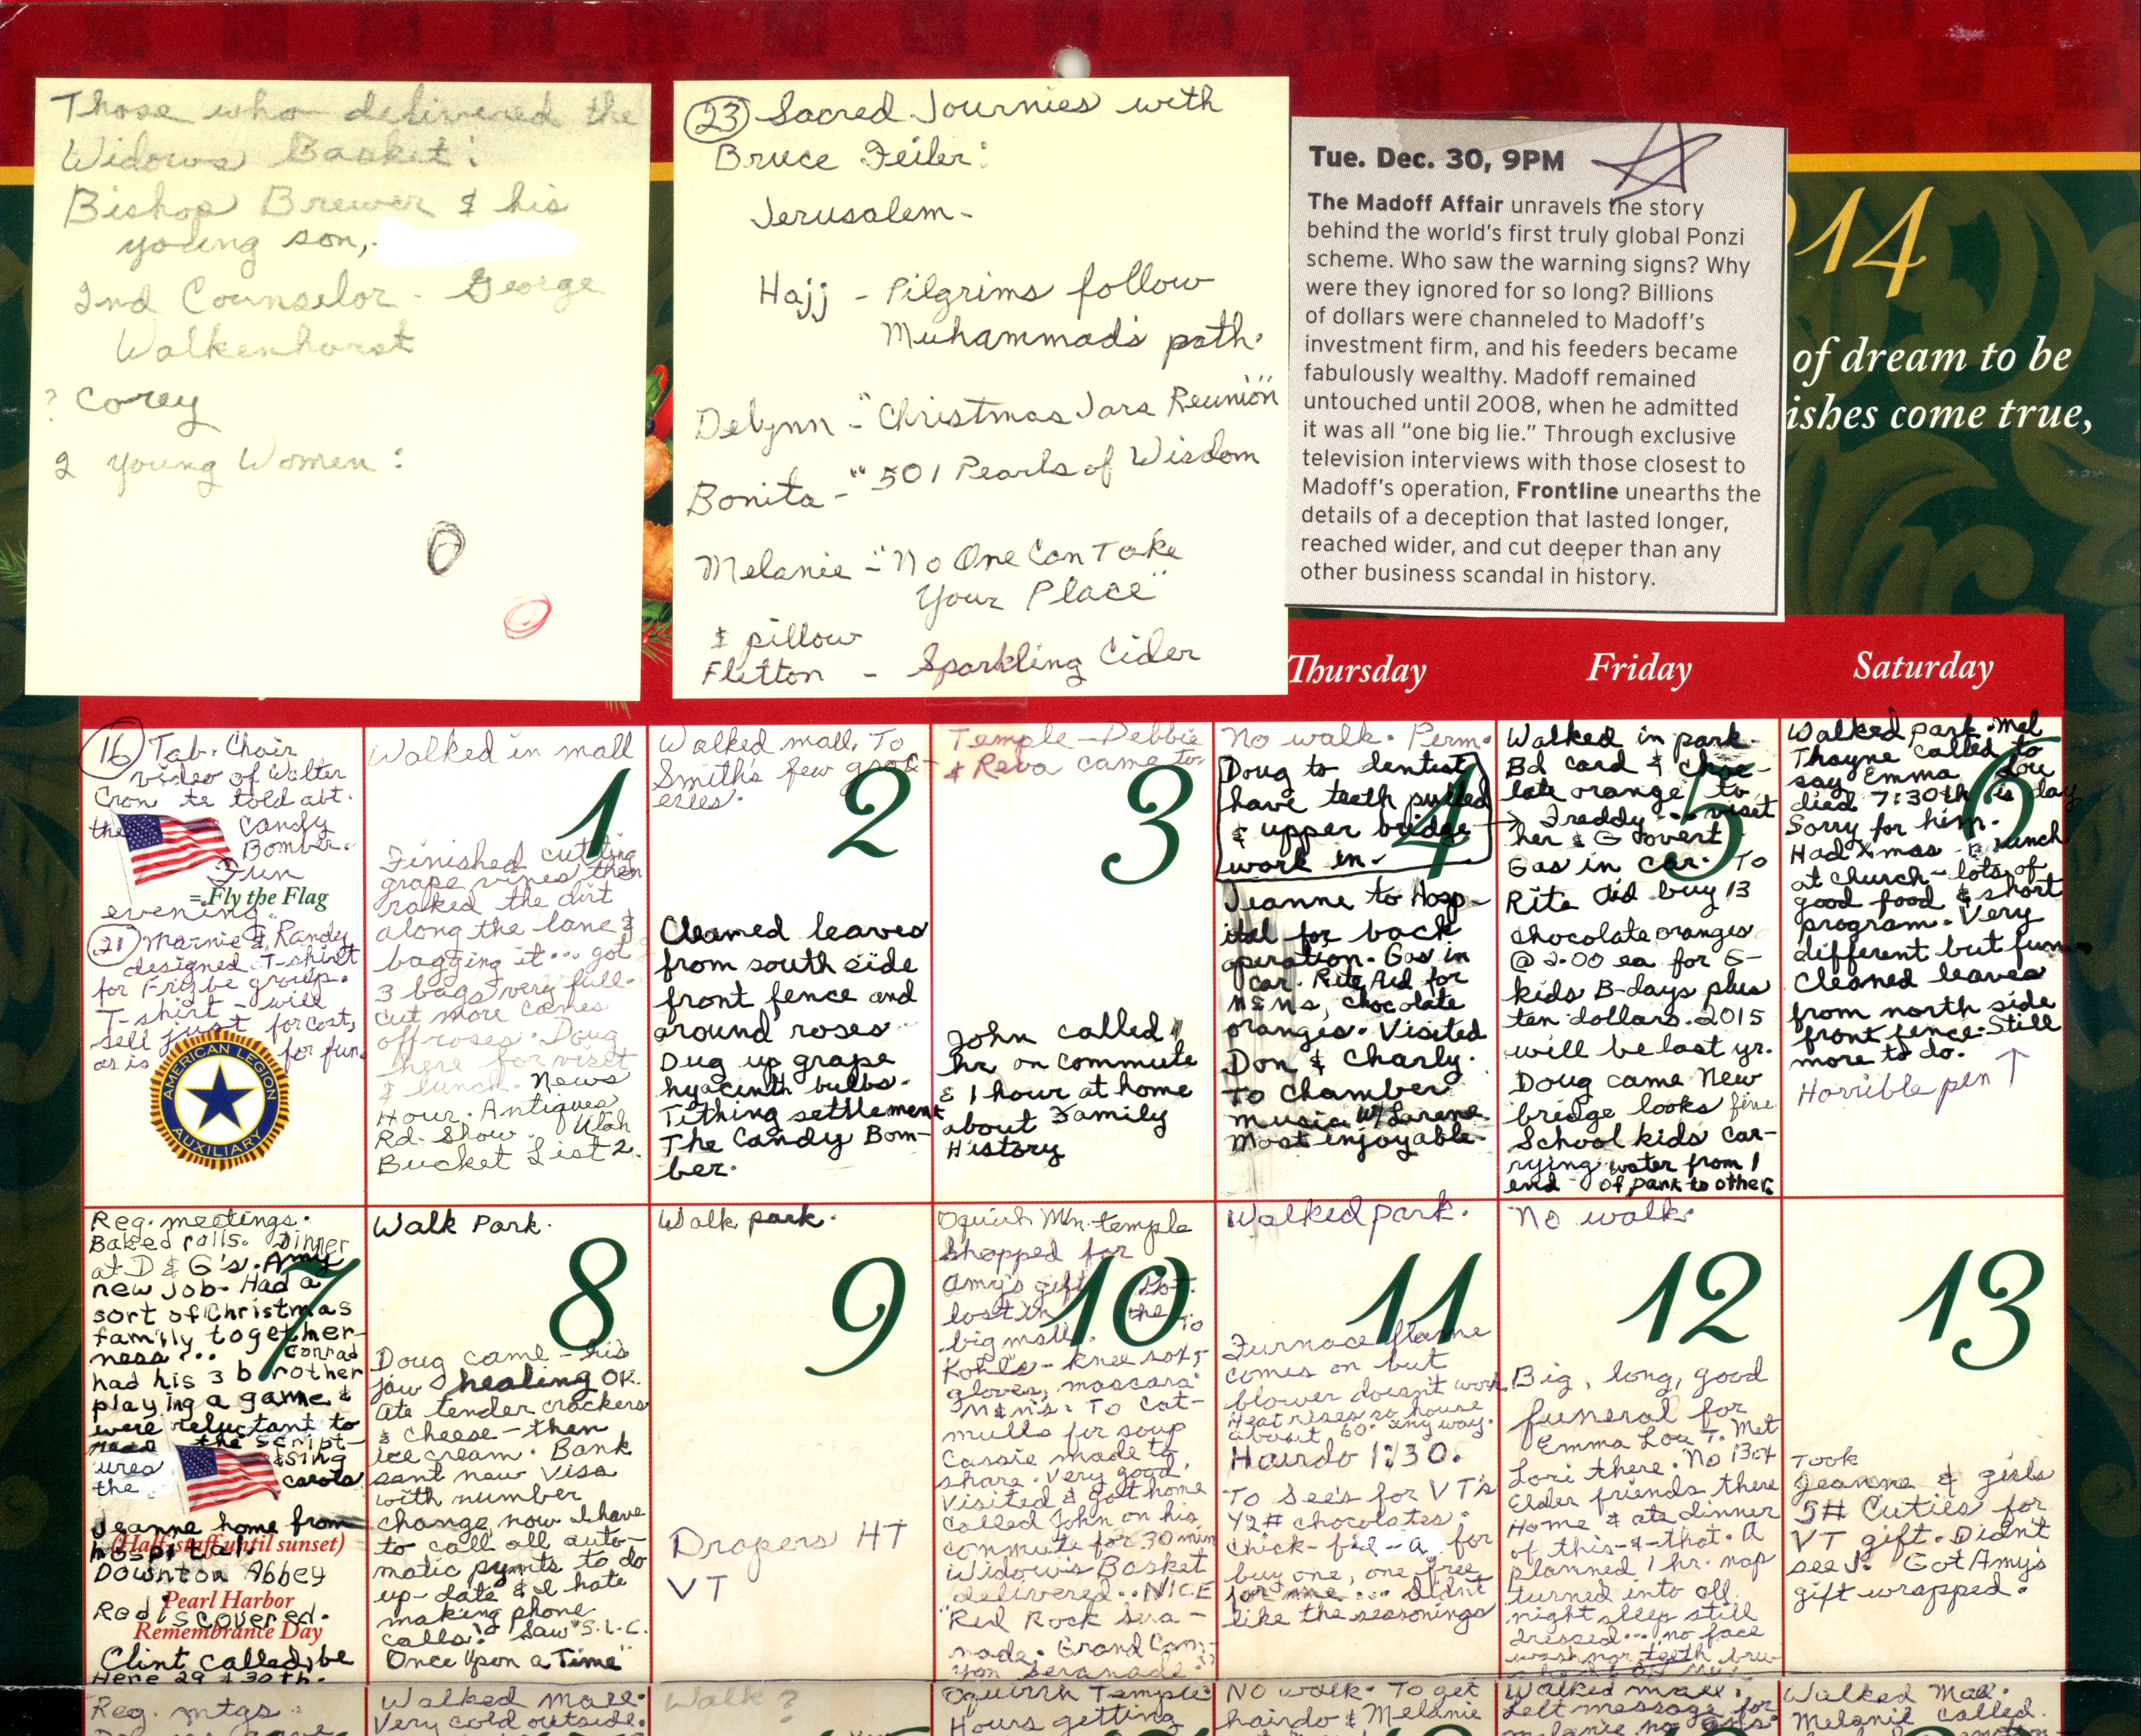 Those who delivered the
Widows Basket:
Bishop Brewer & his
young son,
2nd Counselor - George
Walkenhorst
? Corey
2 Young Women:
23 Sacred Journies with
Bruce Feiler:
Jerusalem-
Hajj - Pilgrims follow
Muhammad's path.
Delynn - "Christmas Jars Reunion"
Bonita - "501 Pearls of Wisdom
Melanie - "No One Can Take
Your Place"
& pillow
Fletton - Sparkling Cider
Tue. Dec. 30, 9PM
The Madoff Affair unravels the story
behind the world's first truly global Ponzi
scheme. Who saw the warning signs? Why
were they ignored for so long? Billions
of dollars were channeled to Madoff's
investment firm, and his feeders became
fabulously wealthy. Madoff remained
untouched until 2008, when he admitted
it was all "one big lie." Through exclusive
television interviews with those closest to
Madoff's operation, Frontline unearths the
details of a deception that lasted longer,
reached wider, and cut deeper than any
other business scandal in history.
14
of dream to be
ishes come true,
Thursday
Friday
Saturday
16 Tab. Choir
video of Walter
Cron te told abt.
the Candy
Bomber.
Fun
= Fly the Flag
evening.
21 Marnie & Randy
designed T-shirt
for Frigbe group.
T-shirt - will
sell just for cost,
as is for fun.
AMERICAN LEGION
AUXILIARY
Walked in mall
1
Finished cutting
grape vines then
raked the dirt
along the lane &
bagging it... got
3 bags very full.
cut more canes
off roses. Doug
here for visit
& lunch. News
Hour. Antiques
Rd. Show. Utah
Bucket List 2.
Walked mall. To
Smith's few groc-
eries.
2
Cleaned leaves
from south side
front fence and
around roses
Dug up grape
hyacinth bulbs.
Tithing settlement
The Candy Bom-
ber.
Temple - Debbie
& Reva came to.
3
John called
hr on commute
& 1 hour at home
about Family
History
No walk. Perm.
Doug to dentist
have teeth pulled
& upper bridge
work in.
4
Jeanne to Hosp-
ital for back
operation. Gas in
car. Rite Aid for
M&Ms, chocolate
oranges. Visited
Don & Charly.
To Chamber
music w/ Larene
Most enjoyable.
Walked in park.
Bd card & choc-
late orange to
Freddy... visit
her & G overt
5
Gas in car. To
Rite Aid buy 13
chocolate oranges
@ 2.00 ea for G-
kids B-days plus
ten dollars. 2015
will be last yr.
Doug came New
bridge looks fine
School kids car-
rying water from 1
end of park to other.
Walked park. Mel
Thayne called to
say Emma Lou
died 7:30 th is day
6
Sorry for him.
Had Xmas brunch
at church - lots of
good food & short
program. Very
different but fun
Cleaned leaves
from north side
front fence. Still
more to do.
Horrible pen ↑
Reg. meetings.
Baked rolls. Dinner
at D & G's. Amy
new job. Had a
7
sort of Christmas
family together-
ness... Conrad
had his 3 brother
playing a game &
were reluctant to
read the script-
ures & sing
the carols
Jeanne home from
hospital.
(Half-staff until sunset)
Downton Abbey
Pearl Harbor
Rediscovered.
Remembrance Day
Clint called, be
Here 29 & 30th.
Walk Park.
8
Doug came - his
jaw healing OK.
Ate tender crackers
& cheese - then
ice cream. Bank
sent new Visa
with number
change now I have
to call all auto-
matic pymts to do
up-date & I hate
making phone
calls. Saw "S.L.C.
Once Upon a Time"
Walk park.
9
Drapers HT
VT
Oquirrh Mtn. temple
Shopped for
Amy's gift Got
10
lost in the
big mall. To
Kohl's - knee sox,
gloves, mascara
M&M's. To Cat-
mulls for soup
Cassie made to
share. Very good.
Visited & got home
Called John on his
commute for 30 min
Widow's Basket
delivered... NICE
"Red Rock Sera-
nade. Grand Can-
yon Seranade."
Walked park.
11
Furnace flame
comes on but
blower doesn't work
Heat rises so house
about 60° anyway.
Hairdo 1:30.
To See's for VT's
1/2# chocolates.
Chick-fil-a for
buy one, one free
for me... Didn't
like the seasonings
No walk.
12
Big, long, good
funeral for
Emma Lou T. Met
Lori there. No 13th
Elder friends there
Home & ate dinner
of this-&-that. A
planned 1 hr. nap
turned into all
night sleep still
dressed... no face
wash nor teeth bru-
13
Took
Jeanne & girls
5# Cuties for
VT gift. Didn't
see J. Got Amy's
gift wrapped.
Reg. mtgs.
Walked mall.
Very cold outside.
Walk?
Oquirrh Temple
Hours getting
No walk. To get
hairdo & Melanie
Walked mall.
Left message for
Walked Mall.
Melanie called.